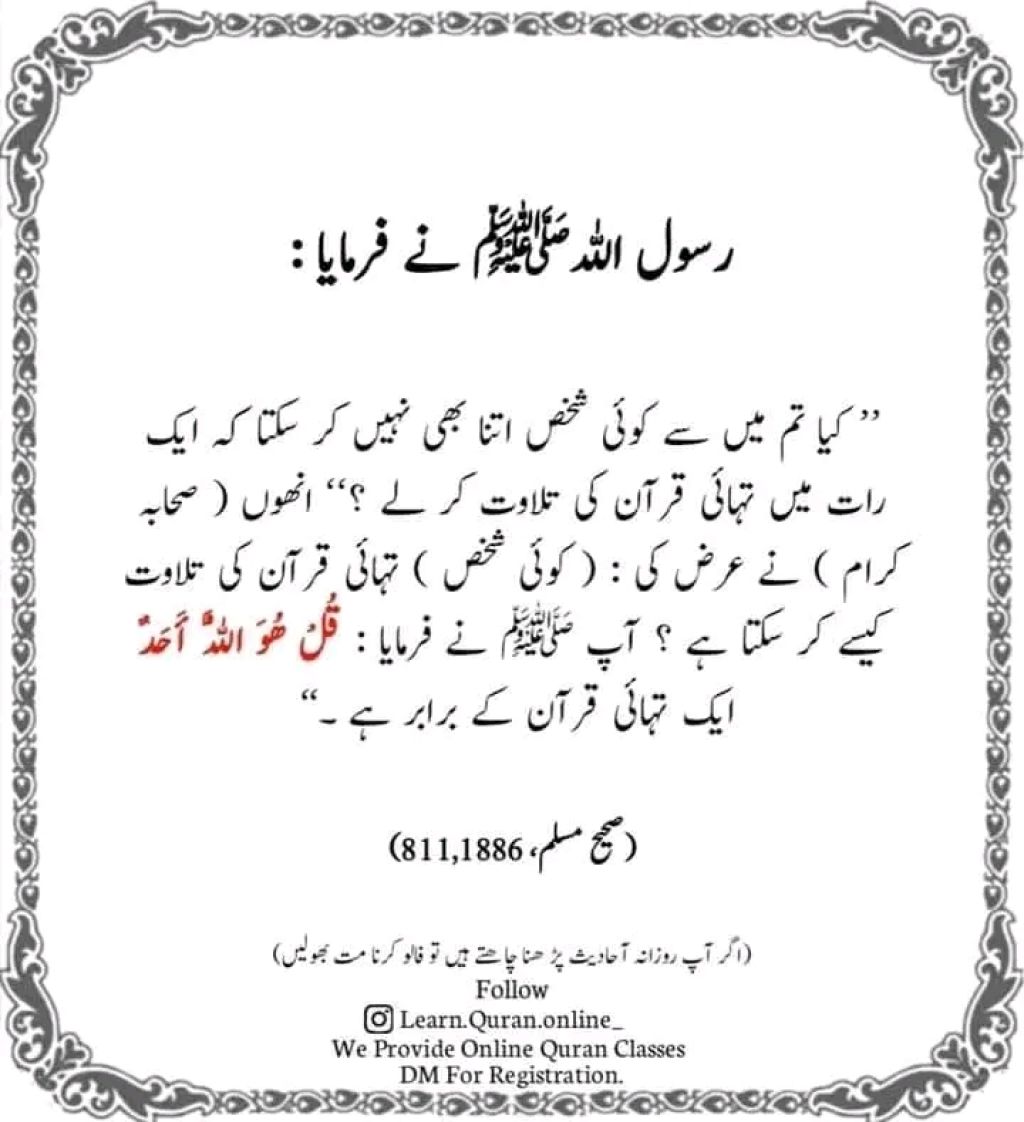 رسول اللہ ﷺ نے فرمایا :
’’ کیا تم میں سے کوئی شخص اتنا بھی نہیں کر سکتا کہ ایک
رات میں تہائی قرآن کی تلاوت کر لے ؟‘‘ انھوں ( صحابہ
کرام ) نے عرض کی : ( کوئی شخص ) تہائی قرآن کی تلاوت
کیسے کر سکتا ہے ؟ آپ ﷺ نے فرمایا : قُلْ هُوَ اللهُ أَحَدٌ
ایک تہائی قرآن کے برابر ہے ۔‘‘
(صحیح مسلم، 811,1886)
(اگر آپ روزانہ آحادیث پڑھنا چاھتے ہیں تو فالو کرنا مت بھولیں)
Follow
Learn.Quran.online_
We Provide Online Quran Classes
DM For Registration.